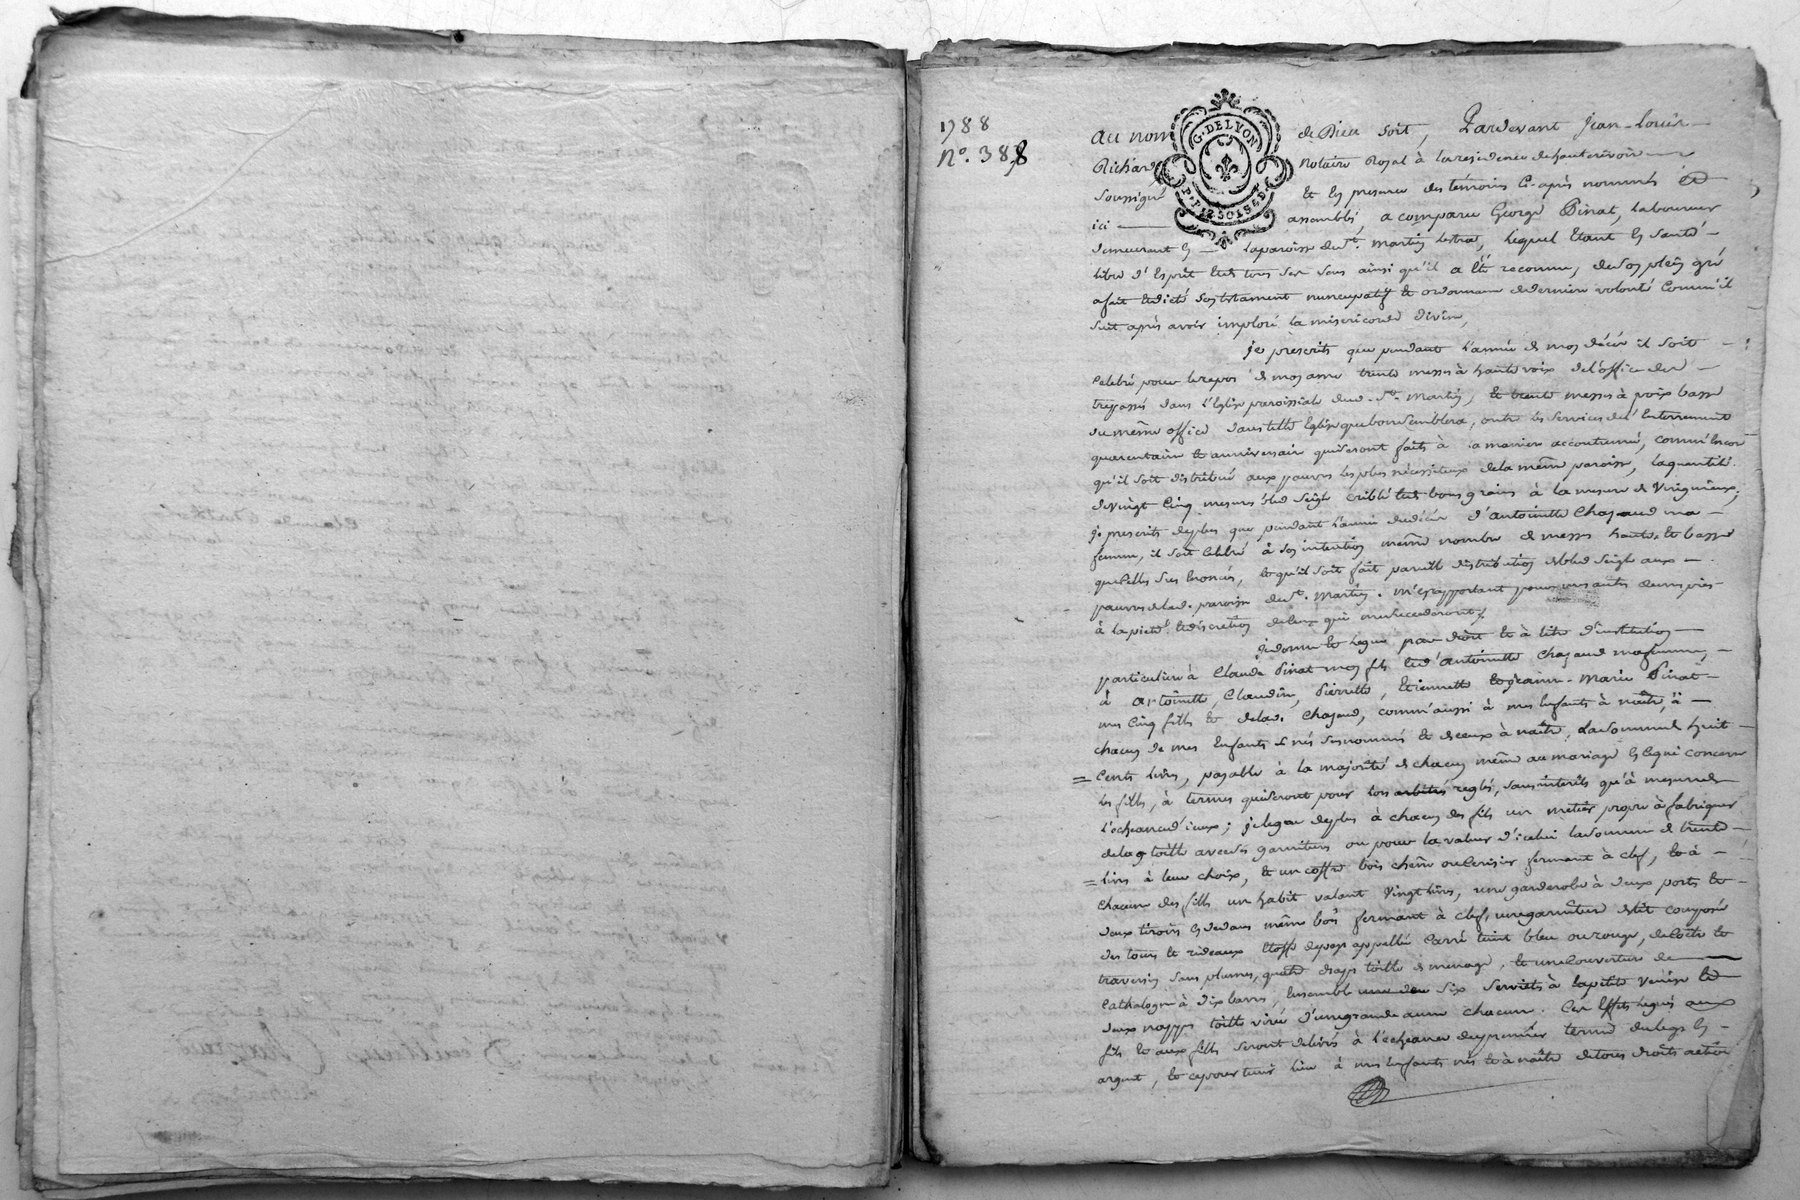 1788
N.º 388
G. DE LYON
Au nom de Dieu soit, Pardevant Jean-Louis
Richard Notaire Royal à la residence de hauterivoire
Soussigné et en presence des témoins ci-après nommés et
ici assemblés, a comparu George Pinat, laboureur
demeurant en la paroisse de St. Martin Lestra, lequel Etant en Santé
libre d'Esprit et de tous ses sens ainsi qu'il a été reconnu, de son plein gré
a fait et dicté son testament nuncupatif et ordonnance de derniere volonté comm'il
suit après avoir imploré la misericorde divine,
je prescrits que pendant l'année de mon décès il soit
Celebré pour le repos de mon ame trente messes à haute voix de l'office des
trepassés dans l'Eglise paroissiale dud. St. Martin, et trente messes à voix basse
du même office dans telle Eglise que bon semblera, outre les services de l'Enterrement
quarentaine et anniversaire qui seront faits à la maniere accoutumée, comm'encor
qu'il soit distribué aux pauvres les plus nécessiteux de la même paroisse, la quantité
de vingt cinq mesures bled seigle criblé et de bons grains à la mesure de Virignieux;
je prescrits de plus que pendant l'année du décès d'antoinette Chazaud ma
femme, il soit Celebré à son intention même nombre de messes hautes et basses
que celles sus énoncés, et qu'il soit fait pareille distribution de bled seigle aux
pauvres de lad. paroisse de St. Martin. m'en rapportant pour mes autres œuvres pies
à la pieté et discretion de ceux qui me succederont;
je donne et legue par droit et à titre d'institution
particuliere à Claude Pinat mon fils et d'antoinette Chazaud ma femme,
à antoinette, Claudine, Pierrette, Etiennette et jeanne-Marie Pinat
mes cinq filles et de lad. Chazaud, comm'aussi à mes Enfants à naître, à
chacun de mes Enfants nés susnommés et de ceux à naître, la somme de huit
Cents livres, payable à la majorité de chacun même au mariage en ce qui concerne
les filles, à termes qui seront pour lors reglés, sans interêts qu'à mesure de
l'echeance d'iceux; je legue de plus à chacun des fils un metier propre à fabriquer
de la toille avec ses garnitures ou pour la valeur d'icelui la somme de trente
livres à leur choix, et un coffre bois chêne ou Cerisier fermant à clef, et à
chacune des filles un habit valant vingt livres, une garderobe à deux portes et
deux tiroirs en dedans même bois fermant à clef, une garniture de lit composée
des tours et rideaux Etoffe de pays appellée Carré teint bleu ou rouge, de coëte et
traversin sans plumes, quatre draps toille de menage, et une Couverture de
Cathalogne à dix barres, Ensemble six serviettes à la petite Venise et
deux nappes toille virée d'une grande aune chacune. Ces Effets legués aux
fils et aux filles seront delivrés à l'echeance du premier terme du legs en
argent, et ce pour tenir lieu à mes Enfants nés et à naître de tous droits action